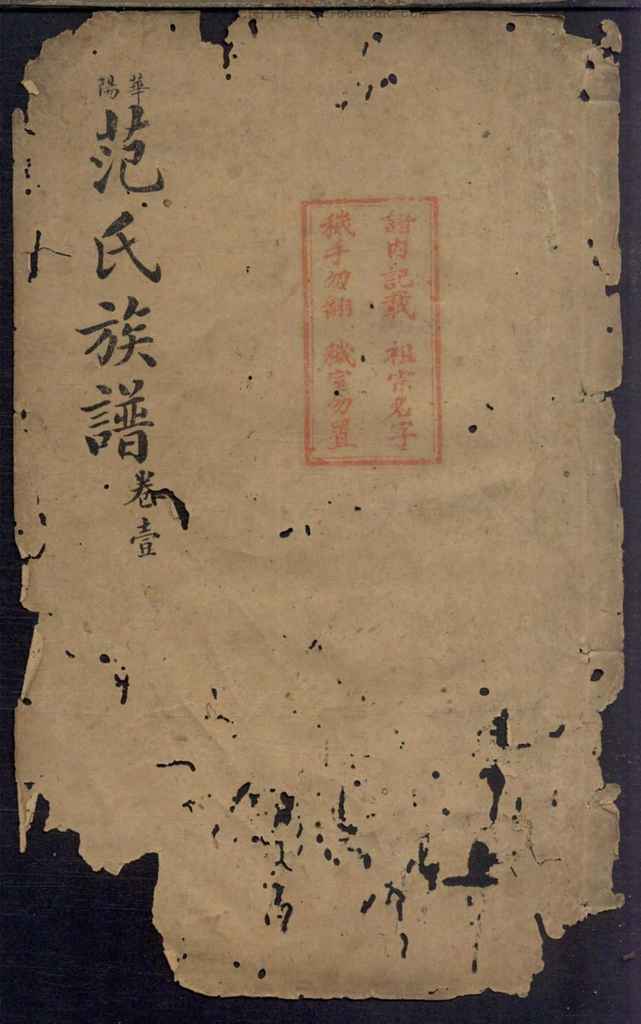 華陽
范氏族譜
卷壹
譜內記載 祖宗名字
穢手勿翻 穢室勿置